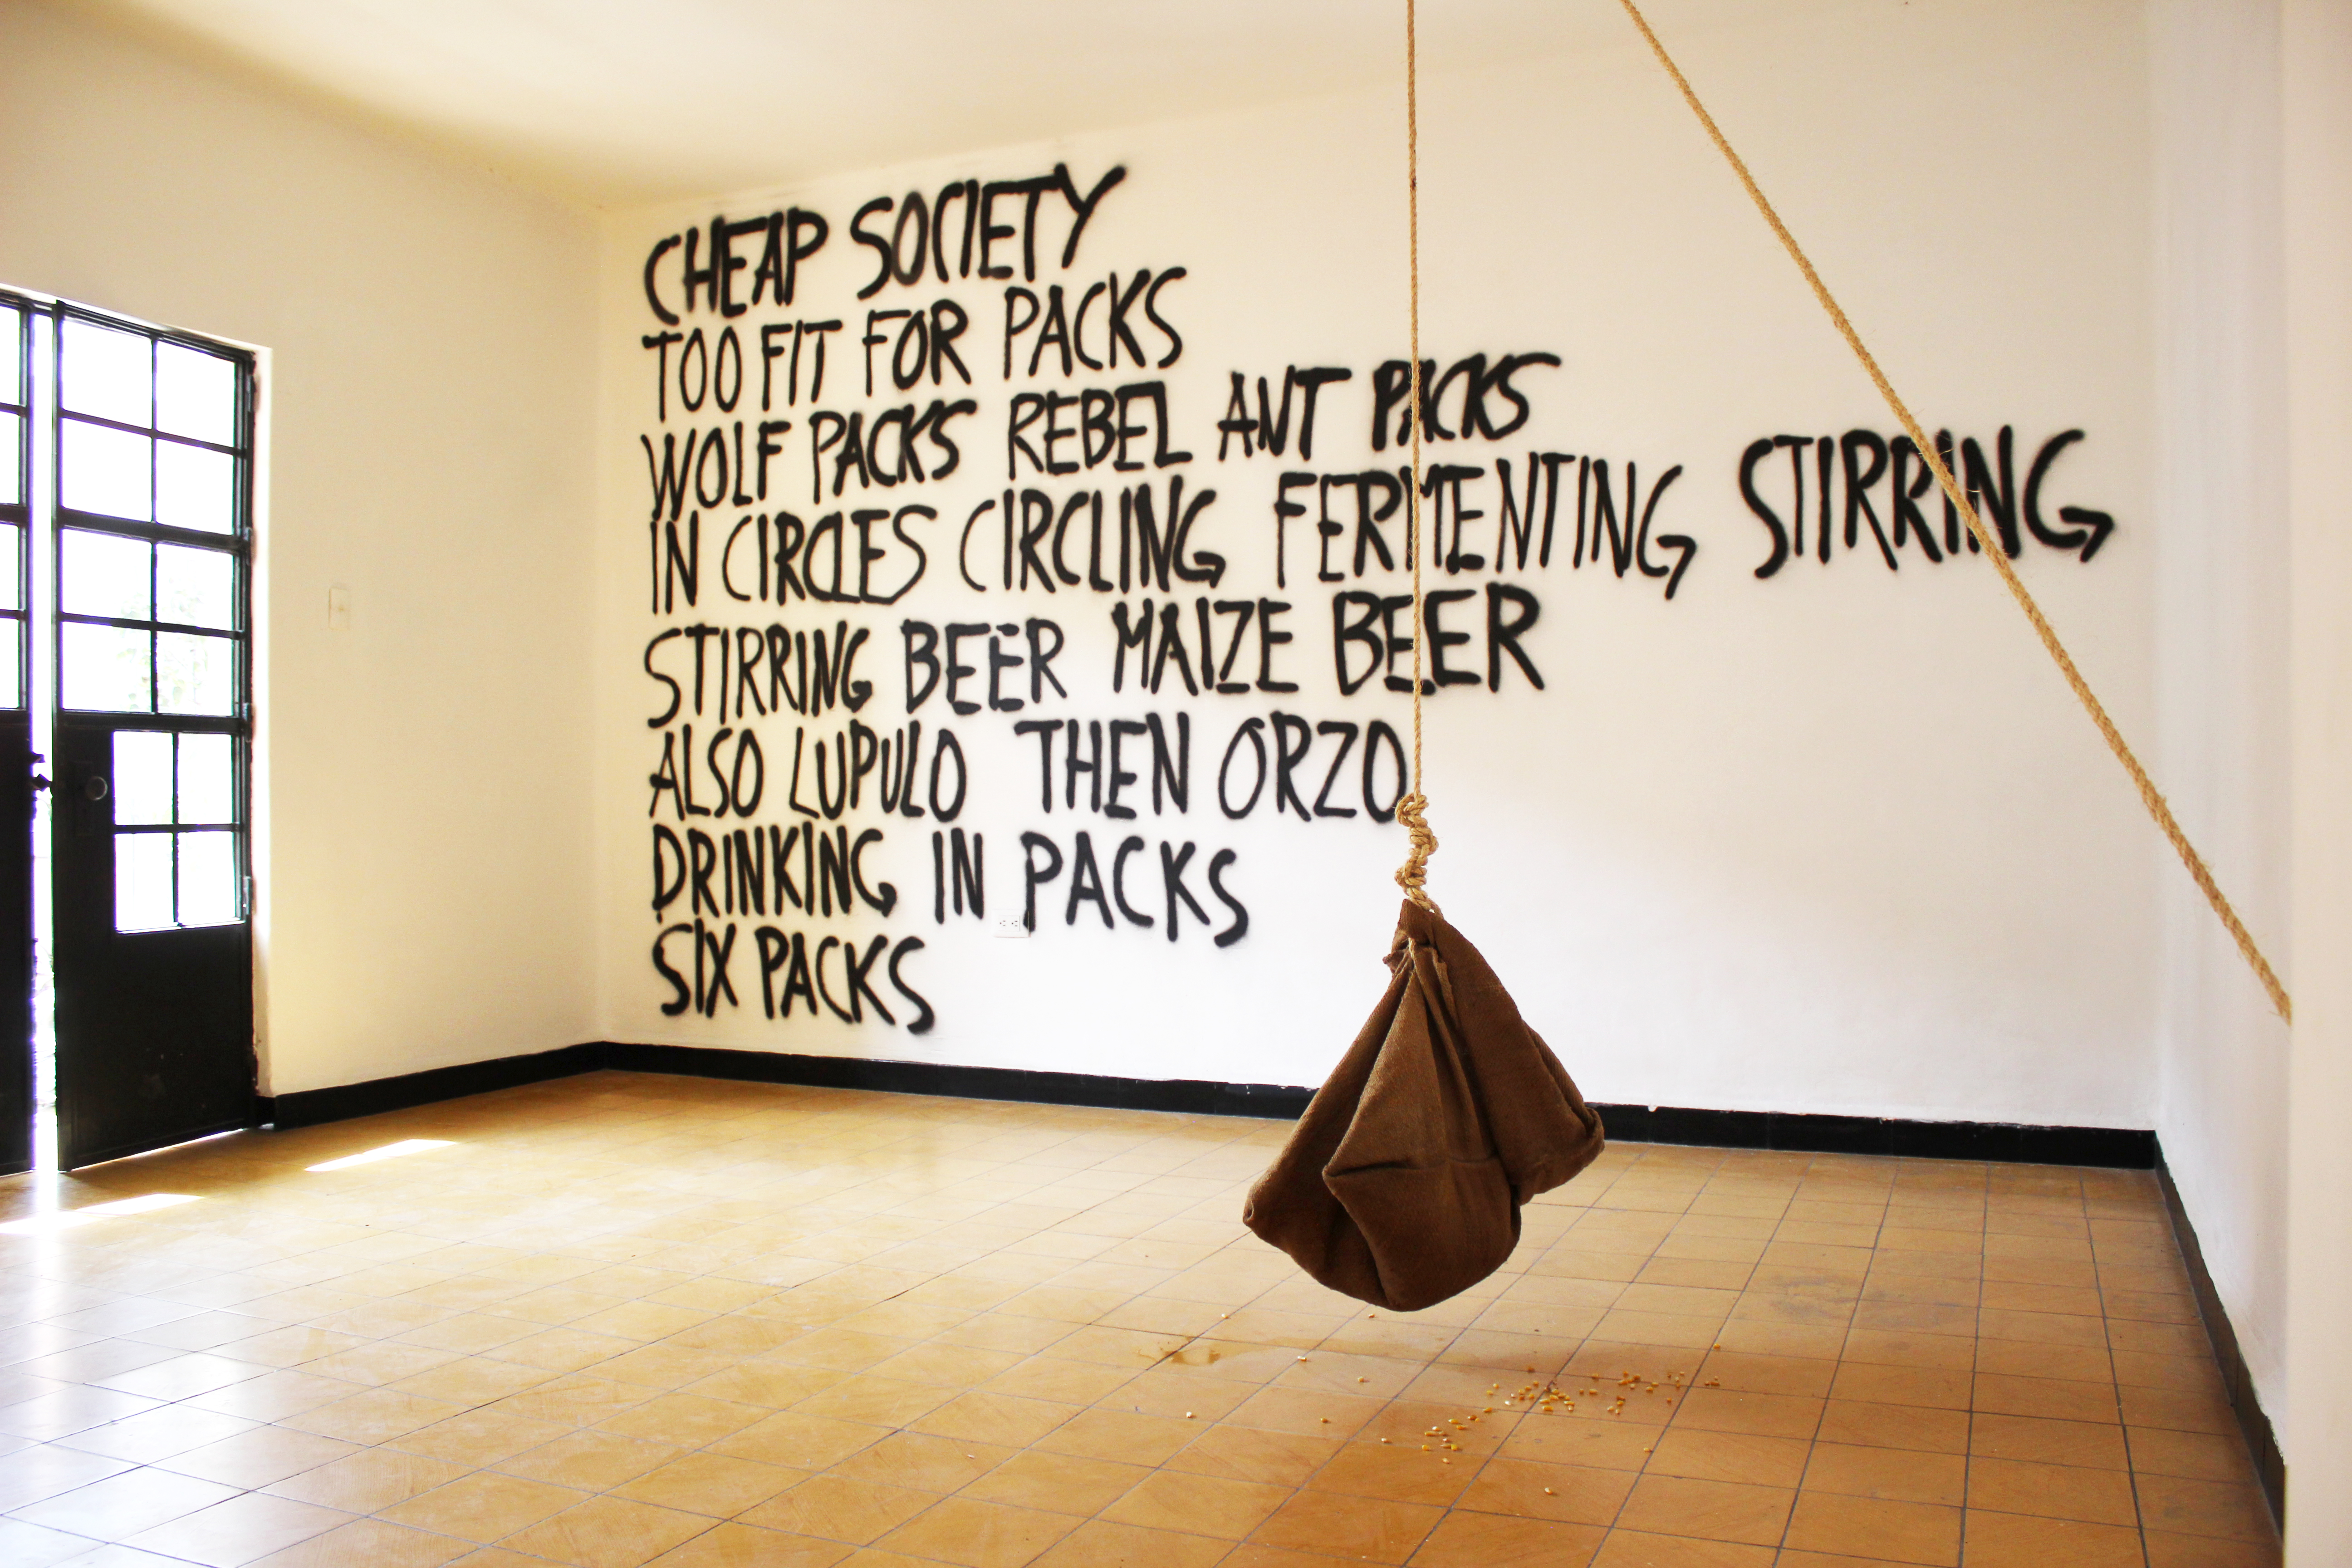 CHEAP SOCIETY
TOO FIT FOR PACKS
WOLF PACKS REBEL ANT PACKS
IN CIRCLES CIRCLING FERMENTING STIRRING
STIRRING BEER MAIZE BEER
ALSO LUPULO THEN ORZO
DRINKING IN PACKS
SIX PACKS